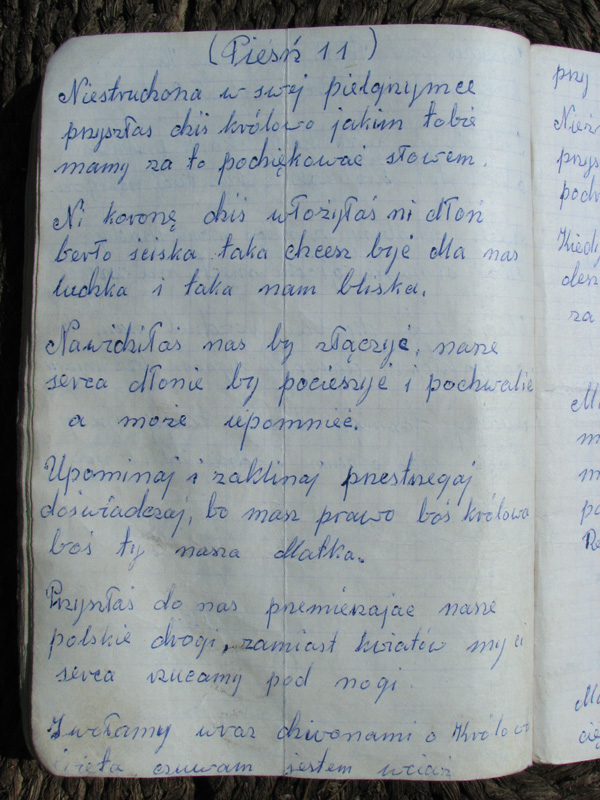 (Pieśń 11)
Niestrudzona w swej pielgrzymce
przyszłaś dziś królowo jakim tobie
mamy za to podziękować słowem.
Ni koronę dziś włożyłaś ni dłoń
berło ściska taka chcesz być dla nas
ludzka i taka nam bliska.
Nawidziłaś nas by złączyć, nasze
serca dłonie by pocieszyć i pochwalić
a może upomnieć.
Upominaj i zaklinaj przestrzegaj
doświadczaj, bo masz prawo boś królowa
boś ty nasza Matka.
Przyszłaś do nas przemierzając nasze
polskie drogi, zamiast kwiatów my ci
serca rzucamy pod nogi.
Zwołamy wraz dzwonami o Królowo
święta czuwam jestem wciąż
przy
podz
Kiedy
za